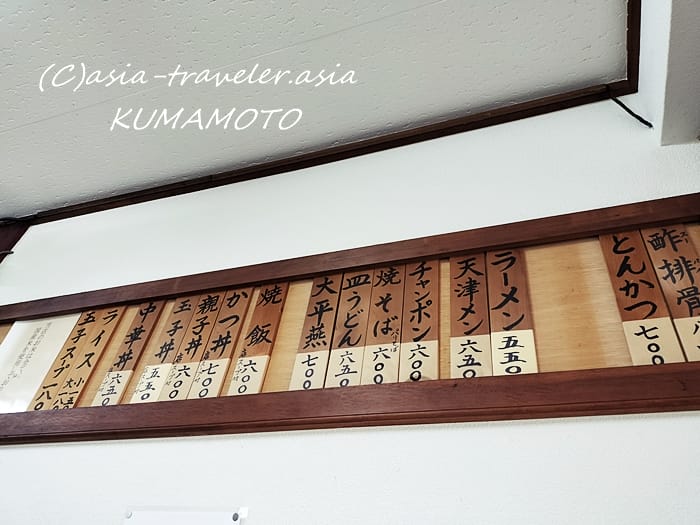 (C)asia-traveler.asia
KUMAMOTO
酢排骨
とんかつ 七〇〇
ラーメン 五五〇
天津メン 六五〇
チャンポン 六〇〇
焼そば 六〇〇
皿うどん 六五〇
大平燕 七〇〇
焼飯 六〇〇
かつ丼 七〇〇
親子丼 六〇〇
玉子丼 五五〇
中華丼 六五〇
ライス 小 大
玉子スープ 一八〇